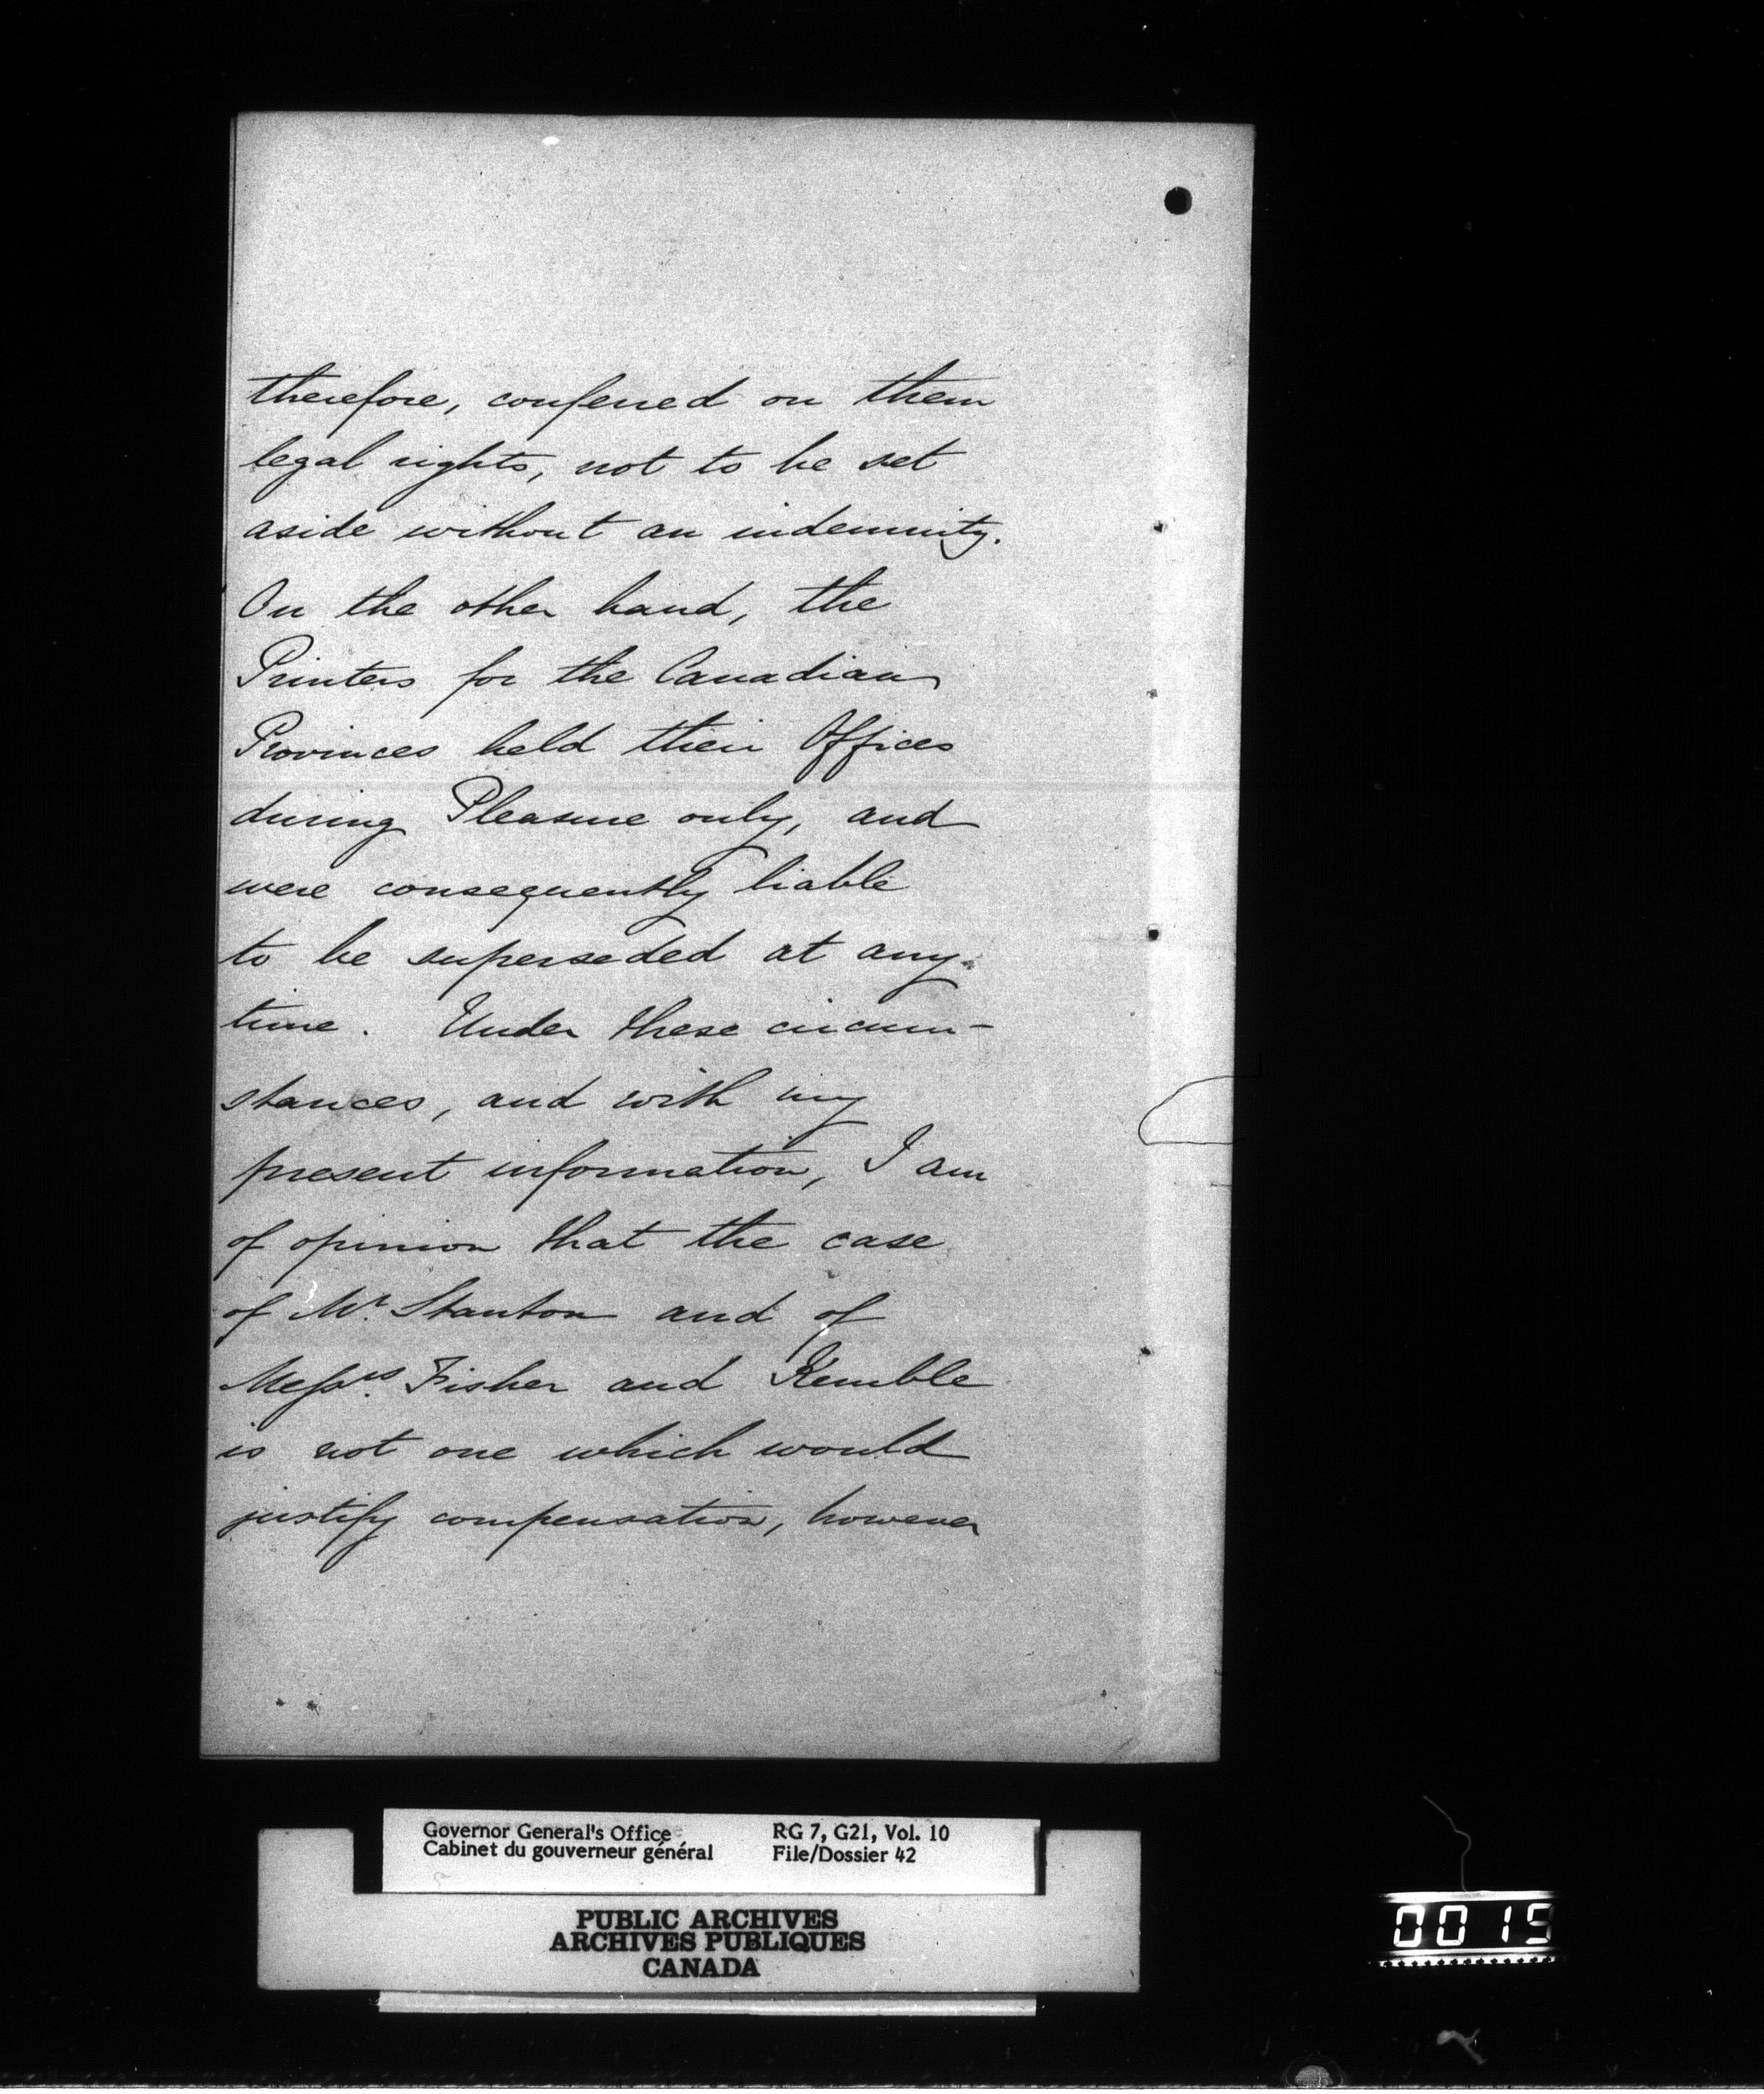 therefore, conferred on them
legal rights, not to be set
aside without an indemnity.
On the other hand, the
Printers for the Canadian
Provinces held their Offices
during Pleasure only, and
were consequently liable
to be superseded at any
time. Under these circum-
stances, and with my
present information, I am
of opinion that the case
of Mr. Stanton and of
Messrs. Fisher and Kemble
is not one which would
justify compensation, however
Governor General's Office RG 7, G21, Vol. 10
Cabinet du gouverneur général File/Dossier 42
PUBLIC ARCHIVES
ARCHIVES PUBLIQUES
CANADA
0015